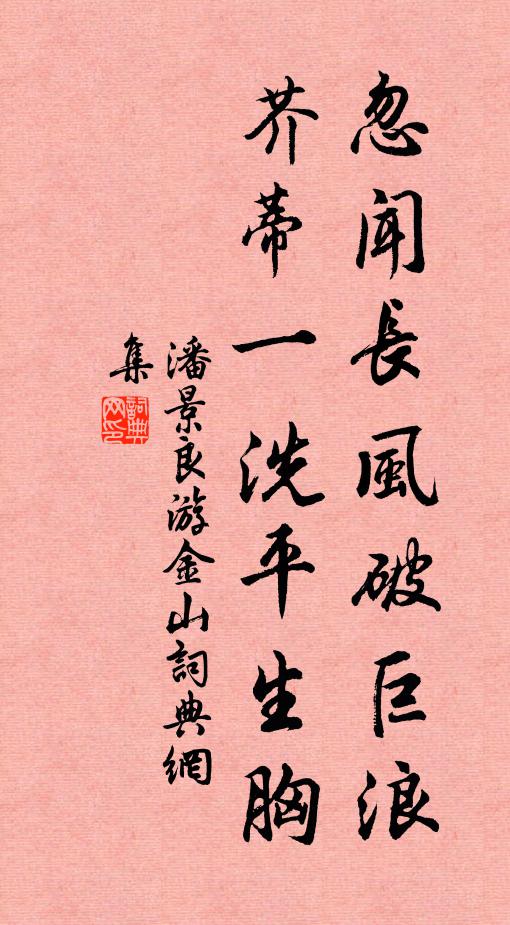 忽聞長風破巨浪
芥蒂一洗平生胸
潘景良游金山詞典網
集
詞典
网印